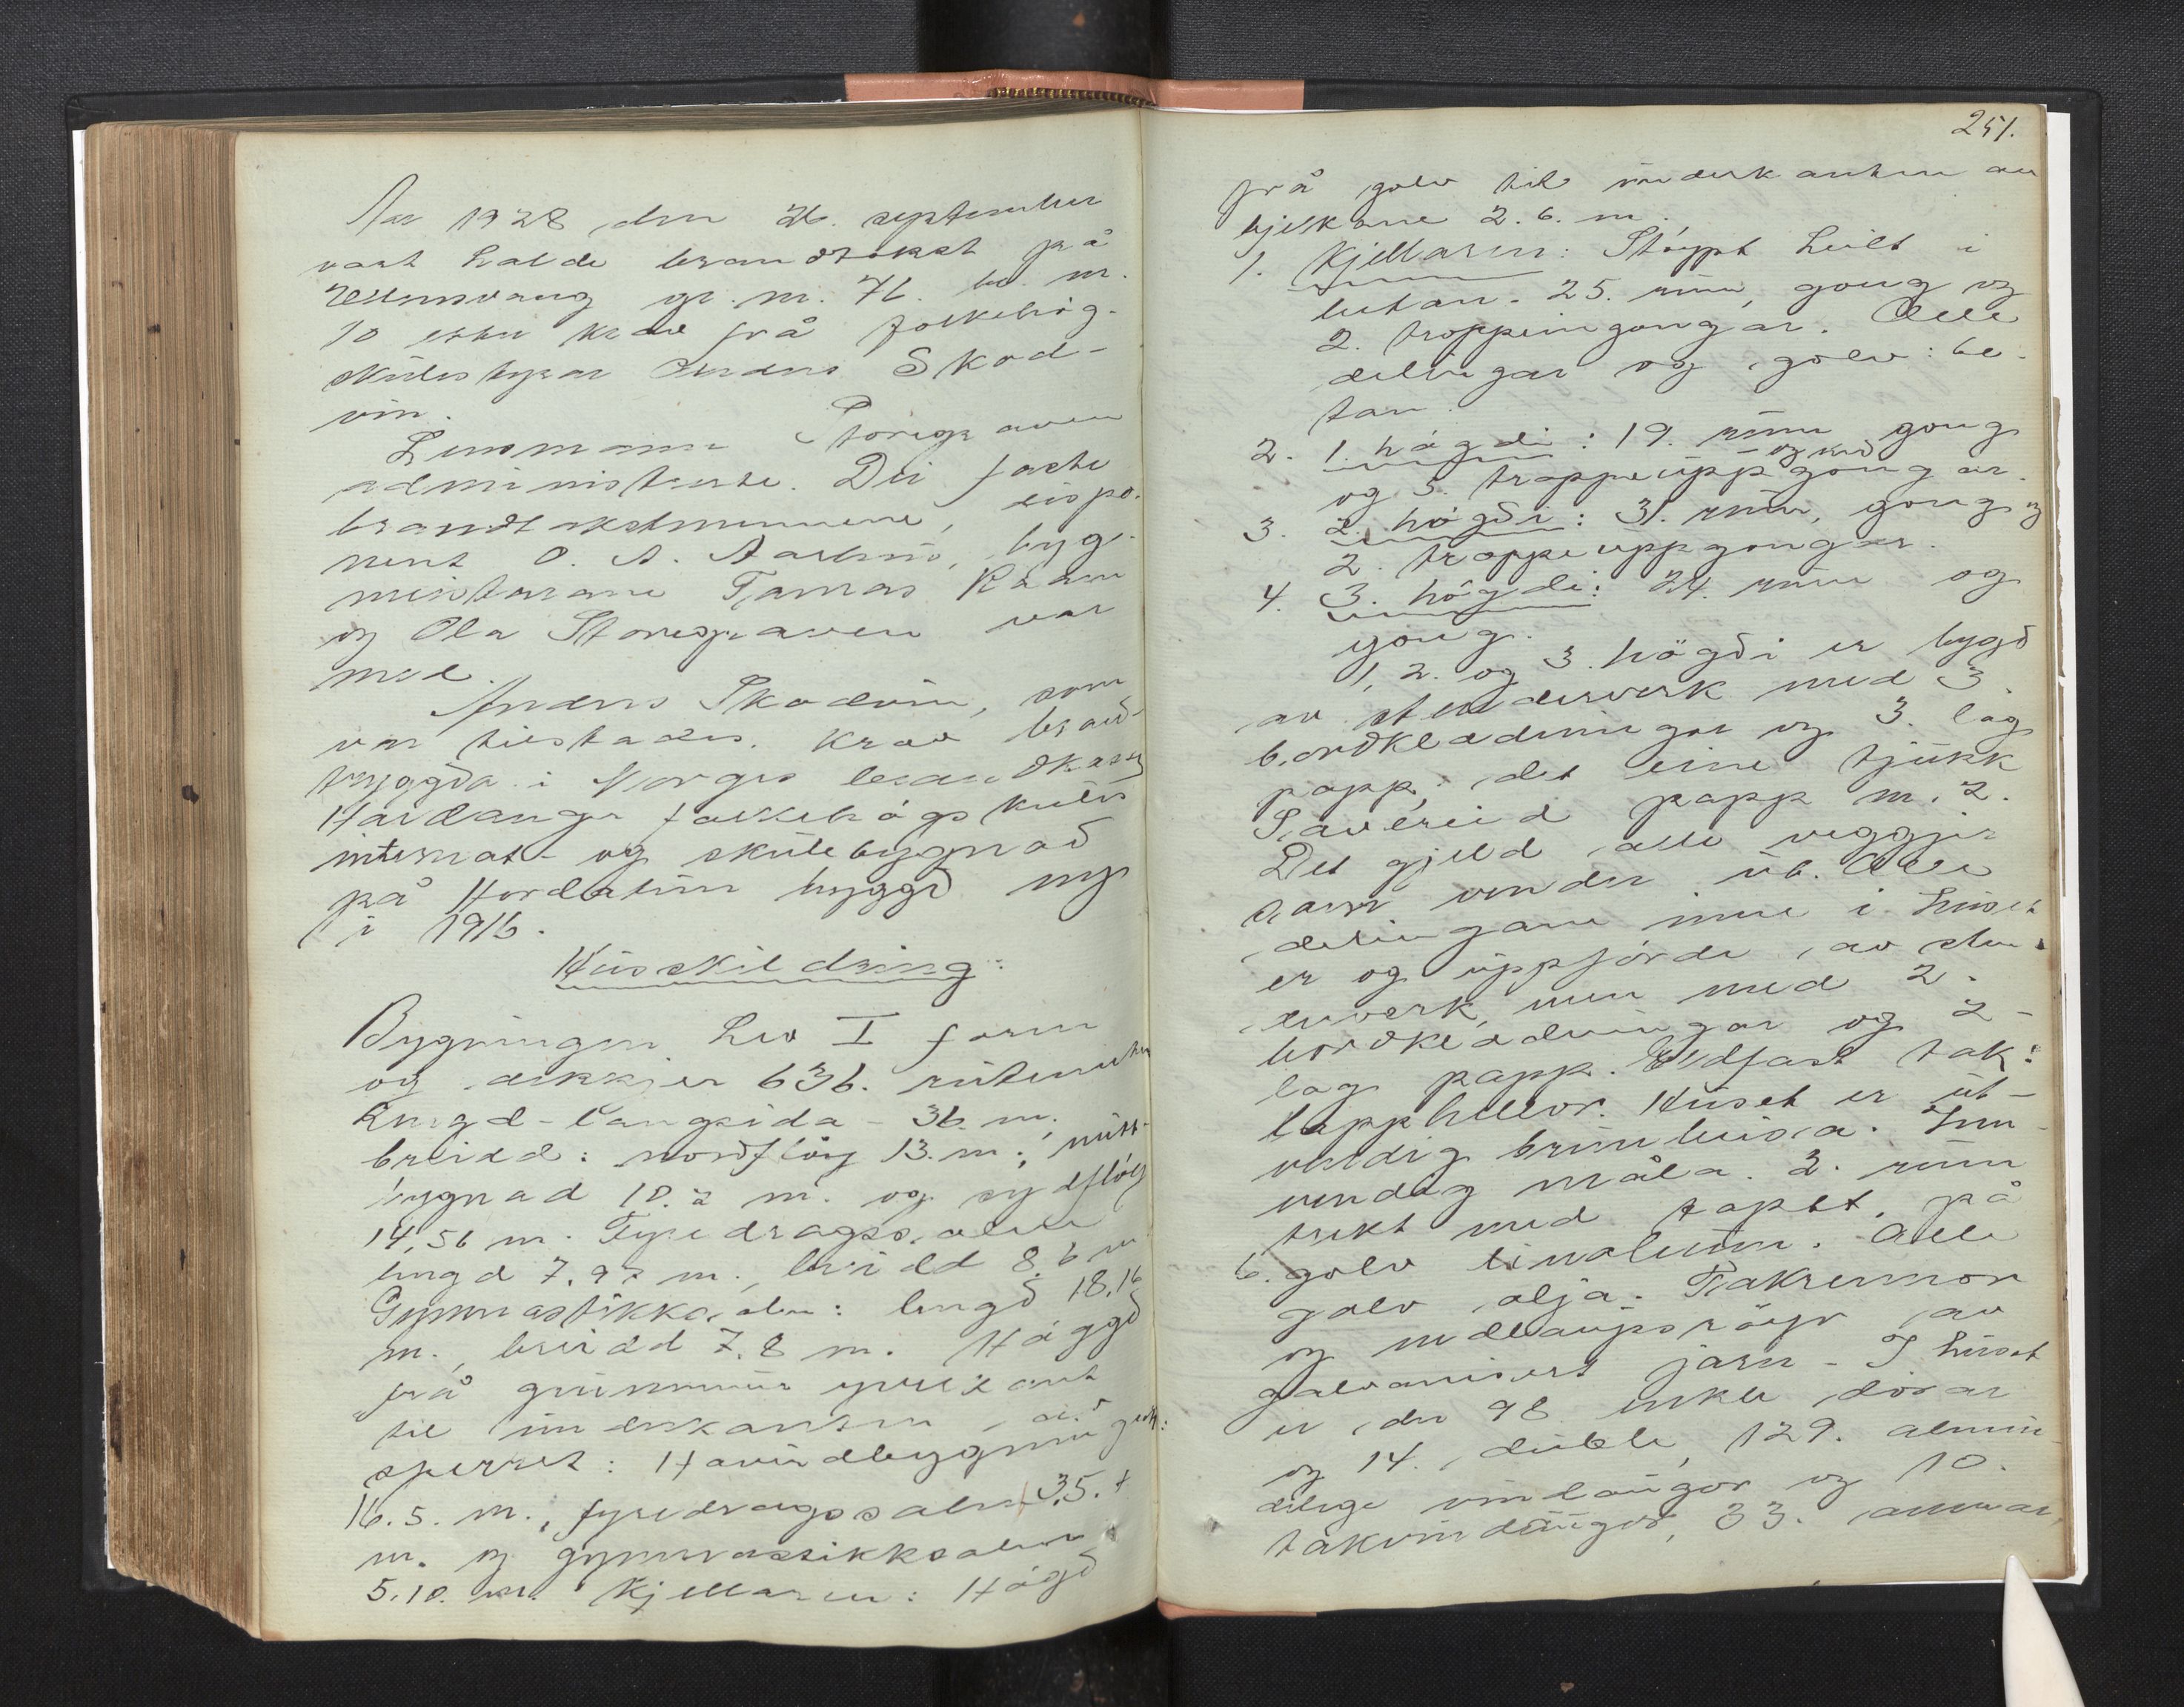 Aar 1928 den 26. september
vart halde brandtakst på
Ullensvang gr. nr. 76. br. nr.
10 etter krav frå folkehög-
skulestyrar Anders Skod-
vin.
Lensmann Storegraven
administrerte. Dei faste
brandtakstmennene, dispo-
nent O. A. Aarhus, byg-
meistarane Tomas
og Ola Storegraven var
med.
Anders Skodvin, som
var tilstades. krav
tryggda i Norges brandkassa
Hardanger folkehögskules
internat- og skulebygnad
på Hordatun byggd ny
i 1916.
Husskildring:
Bygningen hev I form
og dekkjer 636. rutemeter
Lengd - langsida - 36. m.
breidd: nordfløy 13. m.; mitt-
bygnad 10.2 m. og sydfløy
14,56 m. Fyredragssalen
lengd 7.97 m., breidd 8.6 m
Gymnastikksalen: lengd 18,16
m., breidd 7.8 m. Högd
frå grunnmur yverkant
til underkanten av
sperret: Hovudbygningen:
16.5. m., fyredragssalen 3,5.
m. og gymnastikksalen
5.10. m. Kjellaren: Högd
251.
frå golv til underkanten av
bjelkane 2.6. m.
1. Kjellaren: Støypt heilt i
betan. 25. rum, gong og
2. troppeingongar. Alle
delingar og golv: be-
tan.
2. 1. högdi: 19. rum gong
og 3. trappeuppgongar.
3. 2. högdi: 31. rum, gong og
2. trappeuppgongar.
4. 3. högdi: 24. rum og
gong.
1, 2. og 3. högdi er bygd
av stenderverk med 3
bordkledningar og 3. lag
papp; det eine tjukk
papp nr. 2.
Det gjeld alle veggjer
som vender ut. Alle
delingane inne i huset
er og uppförde av sten-
derverk, men med 2.
bordkledningar og 2-
lag papp. Eldfast tak:
lapphellor. Huset er ut-
vendig brunbeisa. Inn-
vendig måla. 2. rum
trekt med tapet, på
6. golv linoleum. Alle
golv olja. Takrennor
og nedlaupsröyr av
galvanisert jarn - I huset
er der 98 enkle dörar
og 14. duble, 129. almin-
delege vindaugor og 10.
takvindaugor, 33.